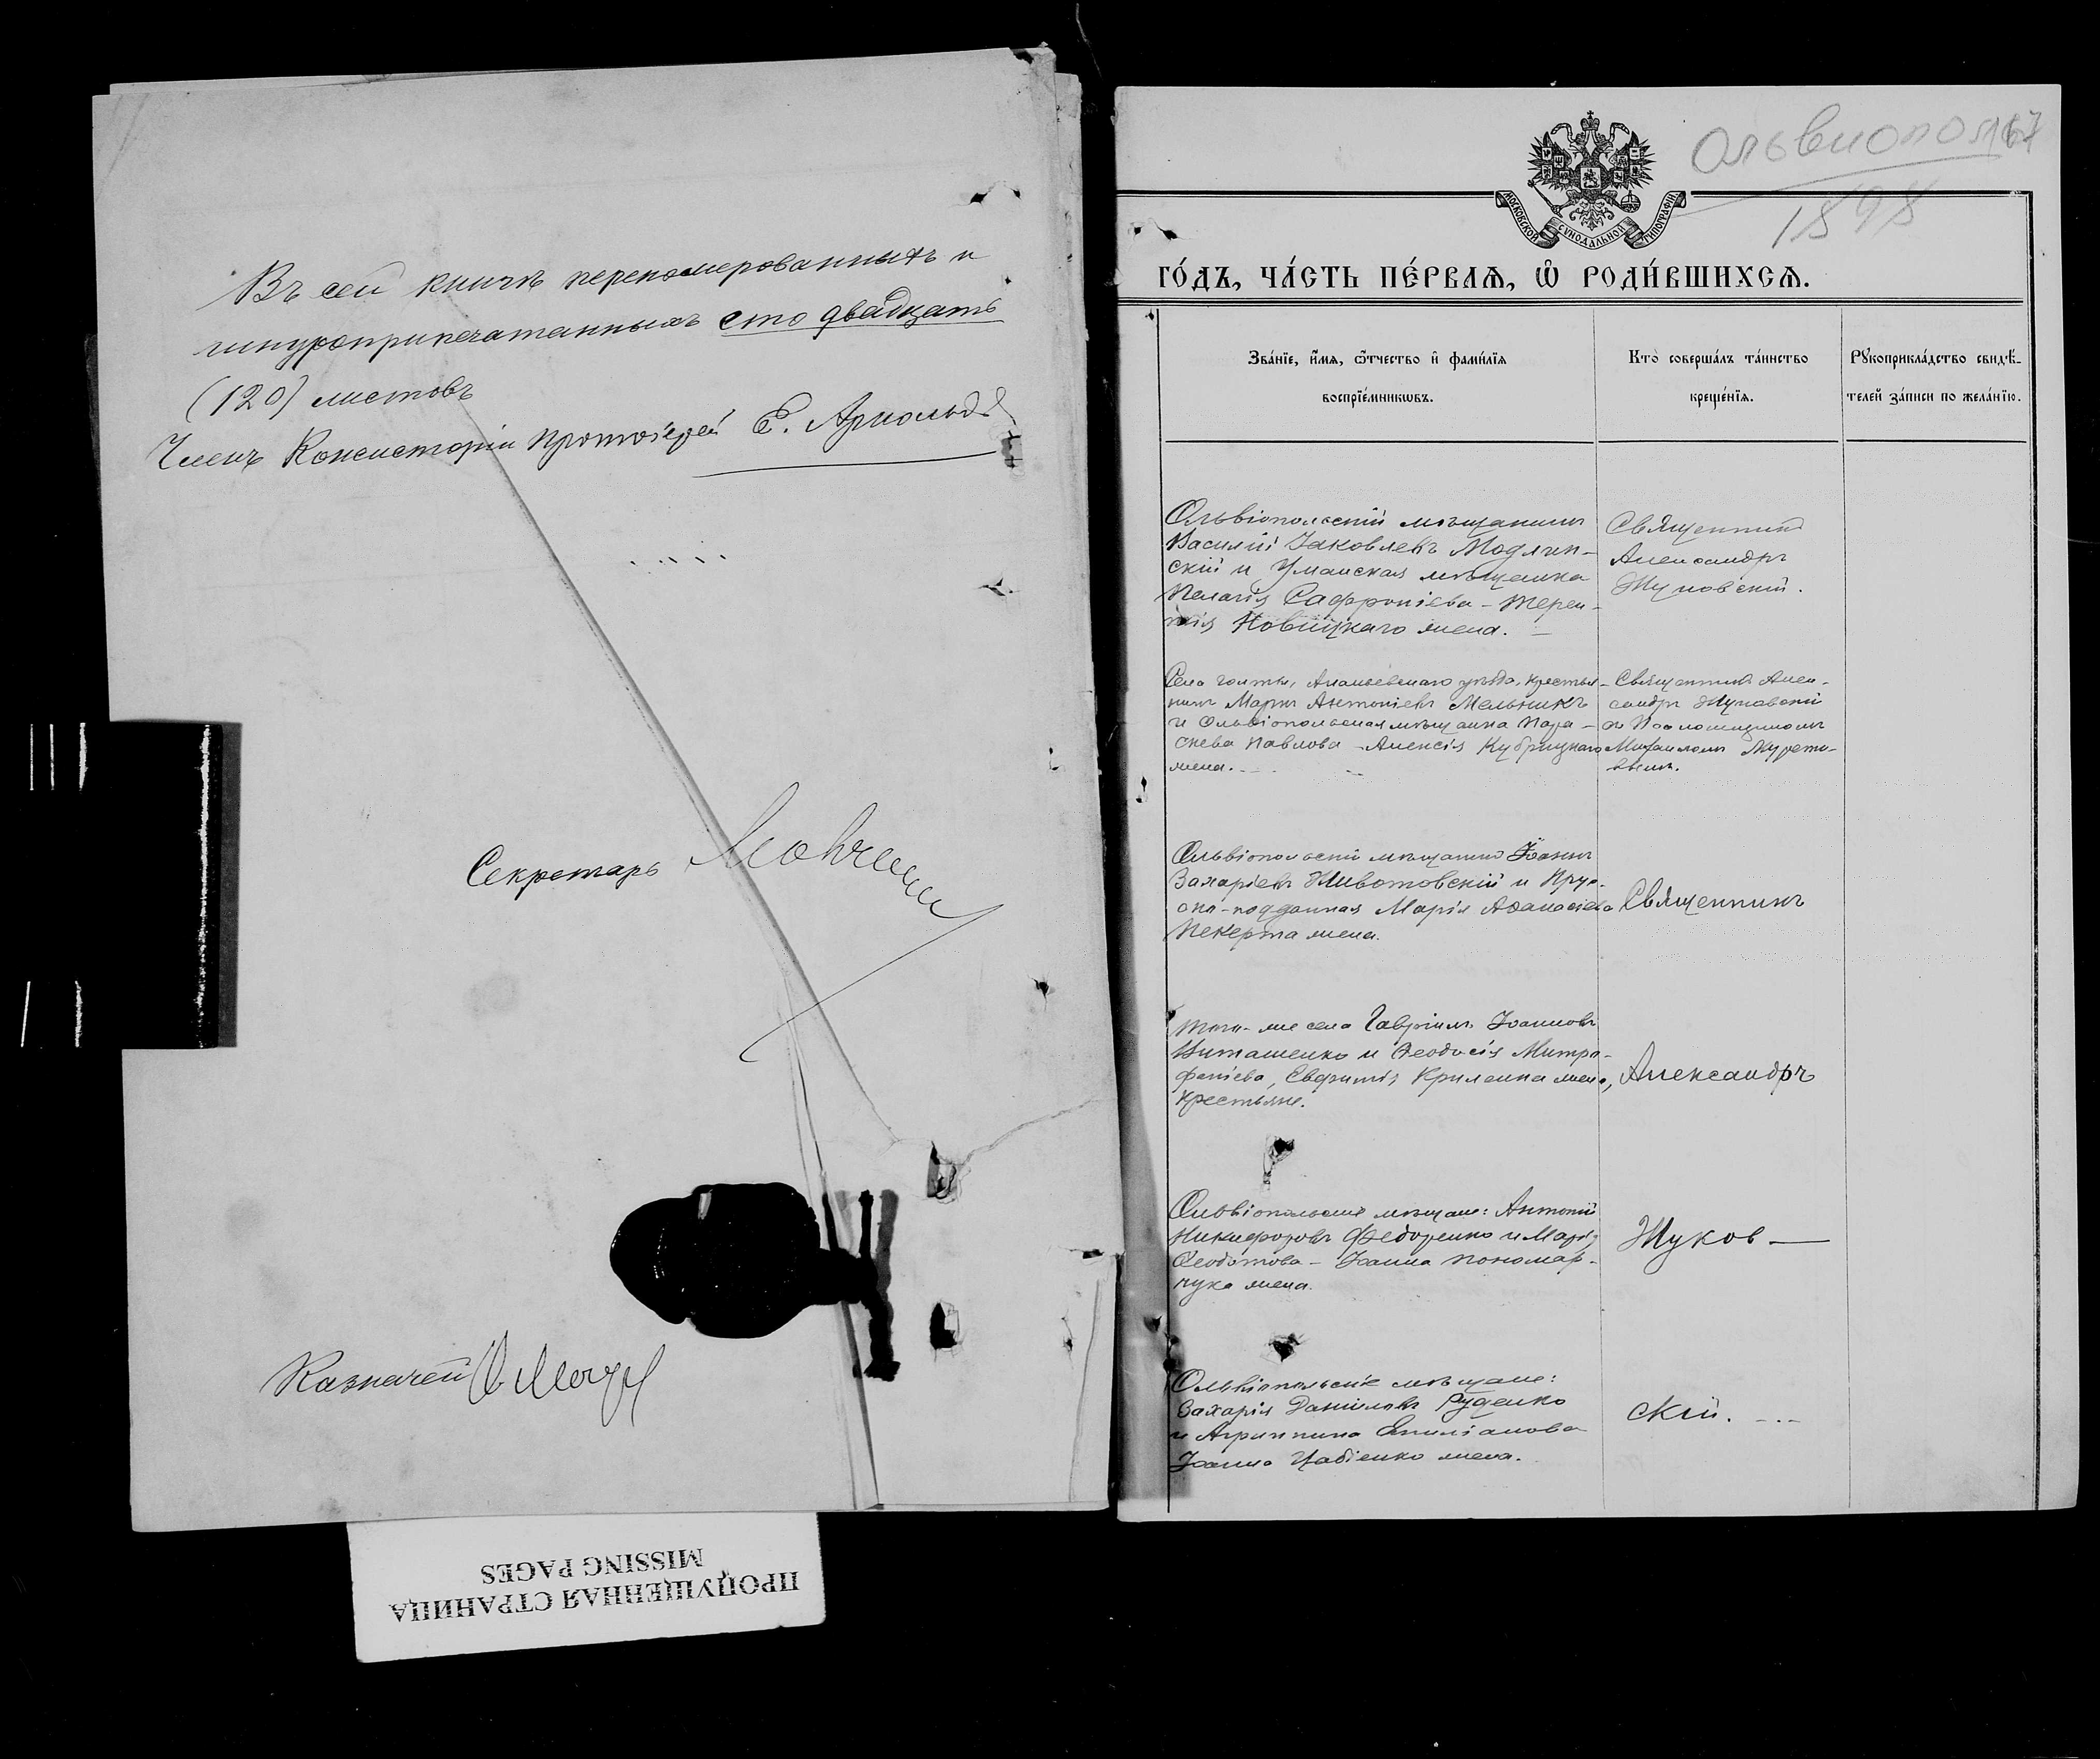 Въ сей книгѣ перенумерованныхъ и
шнуроприпечатанныхъ сто двадцать
(120) листовъ
Членъ Консисторіи Протоіерей Е. Арнольдъ
Секретарь
Казначей
ПРОПУЩЕННАЯ СТРАНИЦА
MISSING PAGES
Ольвиопол 167
1898
МОСКОВСКОЙ СѴНОДАЛЬНОЙ ТИПОГРАФІИ
ГО́ДЪ, ЧА́СТЬ ПЕ́РВАѦ, Ѡ҆ РОДИ́ВШИХСѦ.
Зва́нїе, и҆́мѧ, ѻ҆́тчество и҆ фами́лїѧ
воспрїе́мникѡвъ.
Кто̀ соверша́лъ та́инство
креще́нїѧ.
Рꙋкоприкла́дство свидѣ́-
телей за́писи по жела́нїю.
Ольвіопольскій мѣщанинъ
Василій Іаковлевъ Модлин-
скій и Уманская мѣщанка
Пелагія Сафроніева - Терен-
тія Новицкаго жена.
Священникъ
Александръ
Жуковскій.
Села Голты, Ананьевскаго уѣзда, крестья-
нинъ Маркъ Антоніевъ Мельникъ
и Ольвіопольская мѣщанка Пара-
скева Павлова - Алексія Кубрицкаго
жена.
Священникъ Алек-
сандръ Жуковскій
съ Псаломщикомъ
Михаиломъ
Ольвіопольскій мѣщанинъ Іоаннъ
Захаріевъ Животовскій и Прус-
ско-подданная Марія Аѳанасіева
Пекерта жена.
Священникъ
Того-же села Гавріилъ Іоанновъ
и Ѳеодосія Митро-
фаніева, Евфимія Криленка жена,
крестьяне.
Александръ
Ольвіопольскіе мѣщане: Антоній
Никифоровъ Федоренко и Марія
Ѳеодотова - Іоанна Пономар-
чука жена.
Жуков-
Ольвіопольскіе мѣщане:
Захарія Даніиловъ Руденко
и Агриппина Емиліанова
Іоанна Цабіенко жена.
скій.